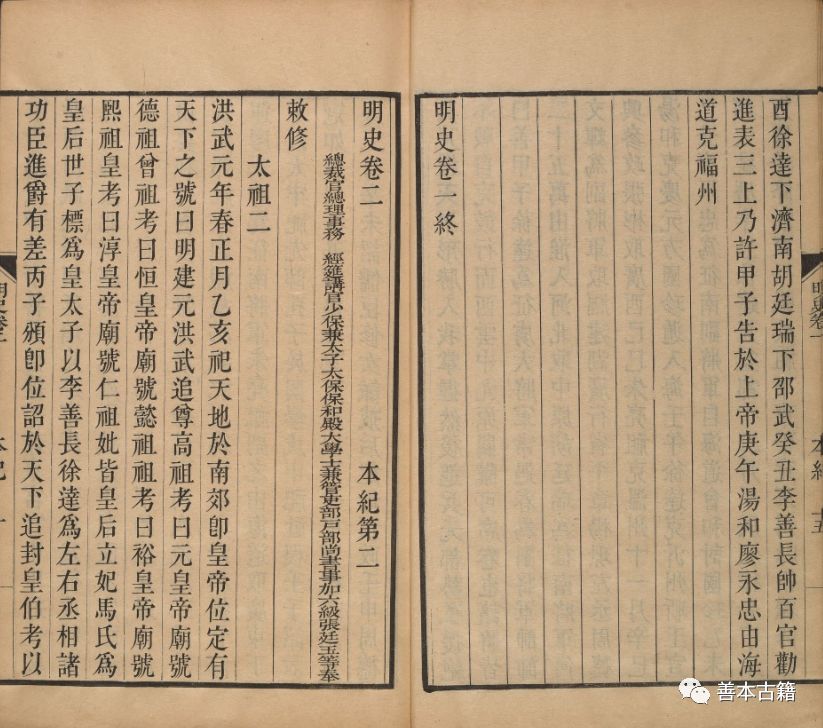 酉徐達下濟南胡廷瑞下邵武癸丑李善長帥百官勸
進表三上乃許甲子告於上帝庚午湯和廖永忠由海
道克福州
明史卷一終
明史卷二 本紀第二
總裁官總理事務 經筵講官少保兼太子太保保和殿大學士兼管吏部戶部尚書事加六級張廷玉等奉
敕修
太祖二
洪武元年春正月乙亥祀天地於南郊卽皇帝位定有
天下之號曰明建元洪武追尊高祖考曰元皇帝廟號
德祖曾祖考曰恒皇帝廟號懿祖祖考曰裕皇帝廟號
熙祖皇考曰淳皇帝廟號仁祖妣皆皇后立妃馬氏爲
皇后世子標爲皇太子以李善長徐達爲左右丞相諸
功臣進爵有差丙子頒卽位詔於天下追封皇伯考以
善本古籍